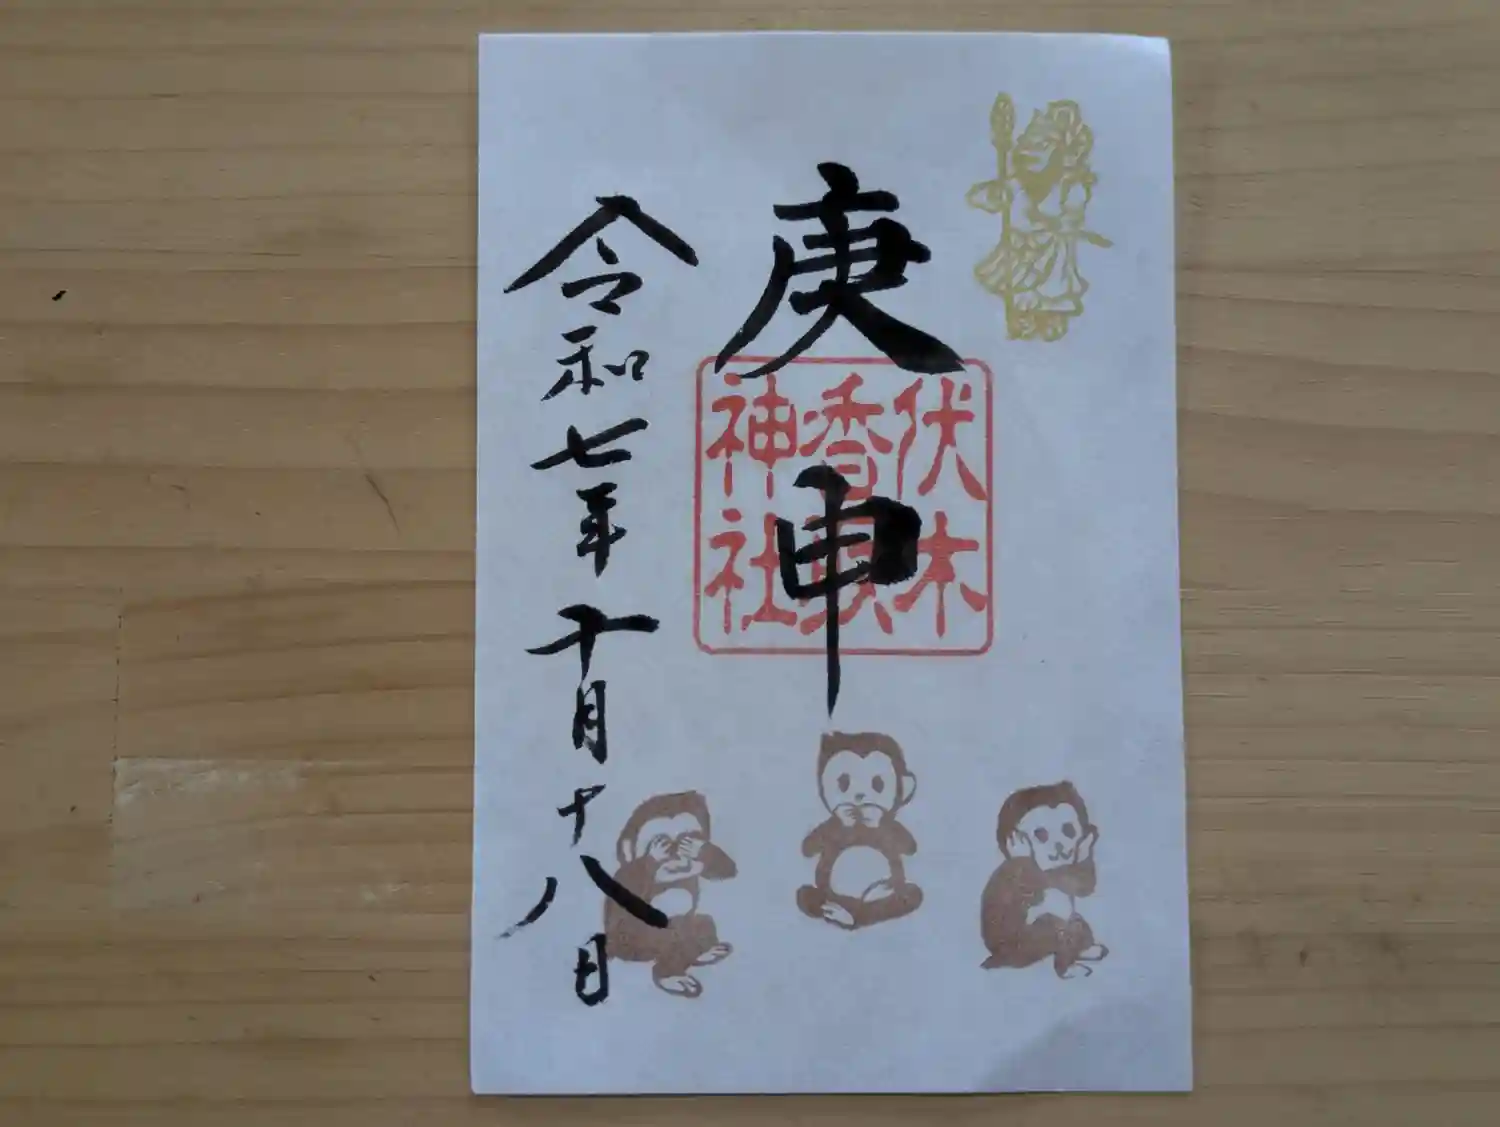 庚申
伏木
香取
神社
令和七年十月十八日